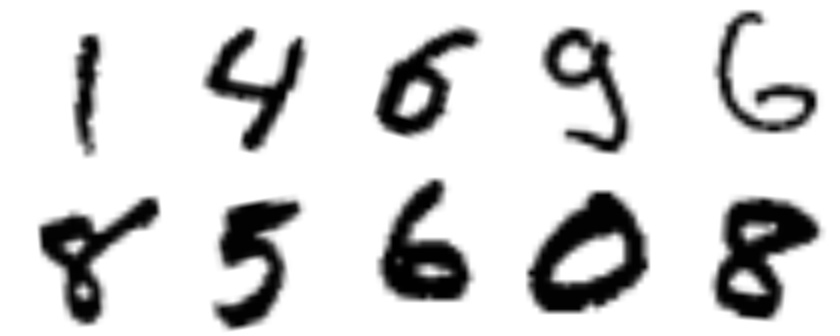 1 4 6 9 6
8 5 6 0 8